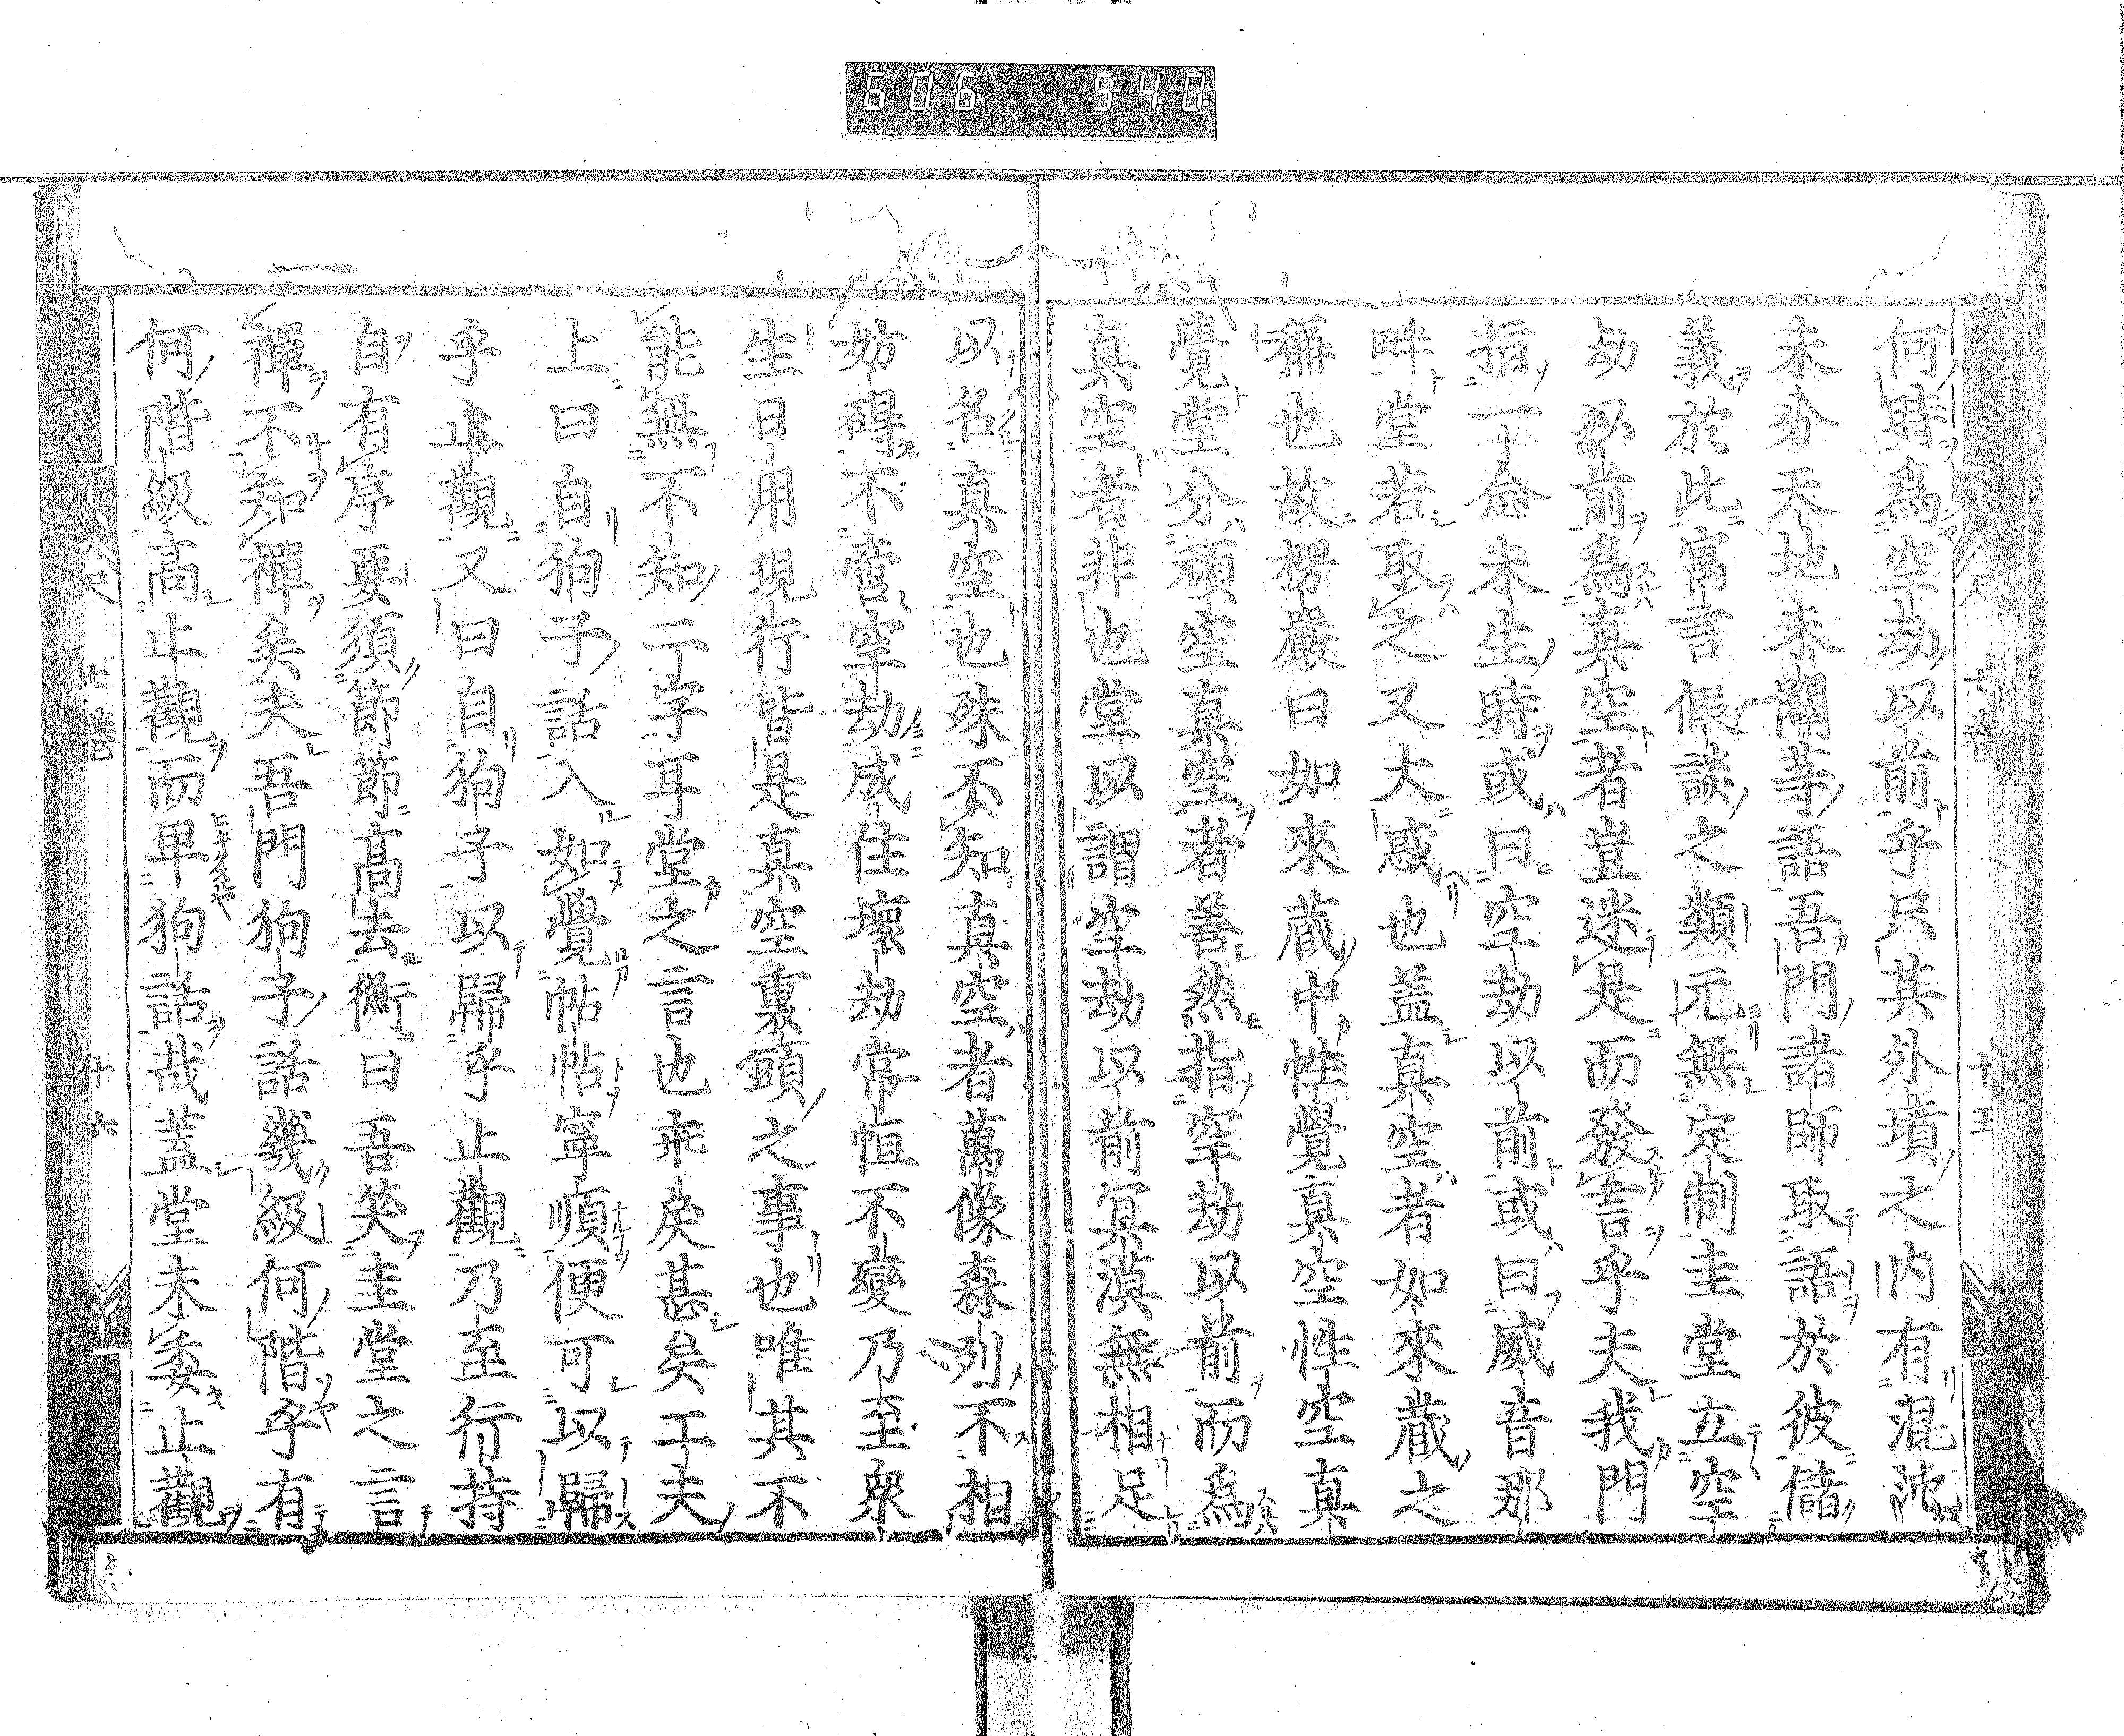 606 540
何時爲空劫以前乎只其外墳之内有混沌
未分天地未闢等語吾門諸師取語於彼儲
義於此寓言假談之類元無定制圭堂立空
劫以前爲真空者豈迷是而發言乎夫我門
指一念未生時或曰空劫以前或曰威音那
畔堂若取之又大惑也盖真空者如來藏之
稱也故楞嚴曰如來藏中性覺真空性空真
覺堂分頑空真空者善然指空劫以前而爲
真空者非也堂以謂空劫以前冥漠無相足
以名真空也殊不知真空者萬像森列不相
妨碍不啻空劫成住壞劫常恒不變乃至衆
生日用現行皆是真空裏頭之事也唯其不
能無不知二字耳堂之言也乖戾甚矣工夫
上曰自狗子話入如覺帖帖寧順便可以歸
乎止觀又曰自狗子以歸乎止觀乃至行持
自有序要須節節高去衡曰吾笑圭堂之言
禪不知禪矣夫吾門狗子話幾級何階乎有
何階級高止觀而卑狗話哉蓋堂未委止觀
七卷 十五
七卷 十六